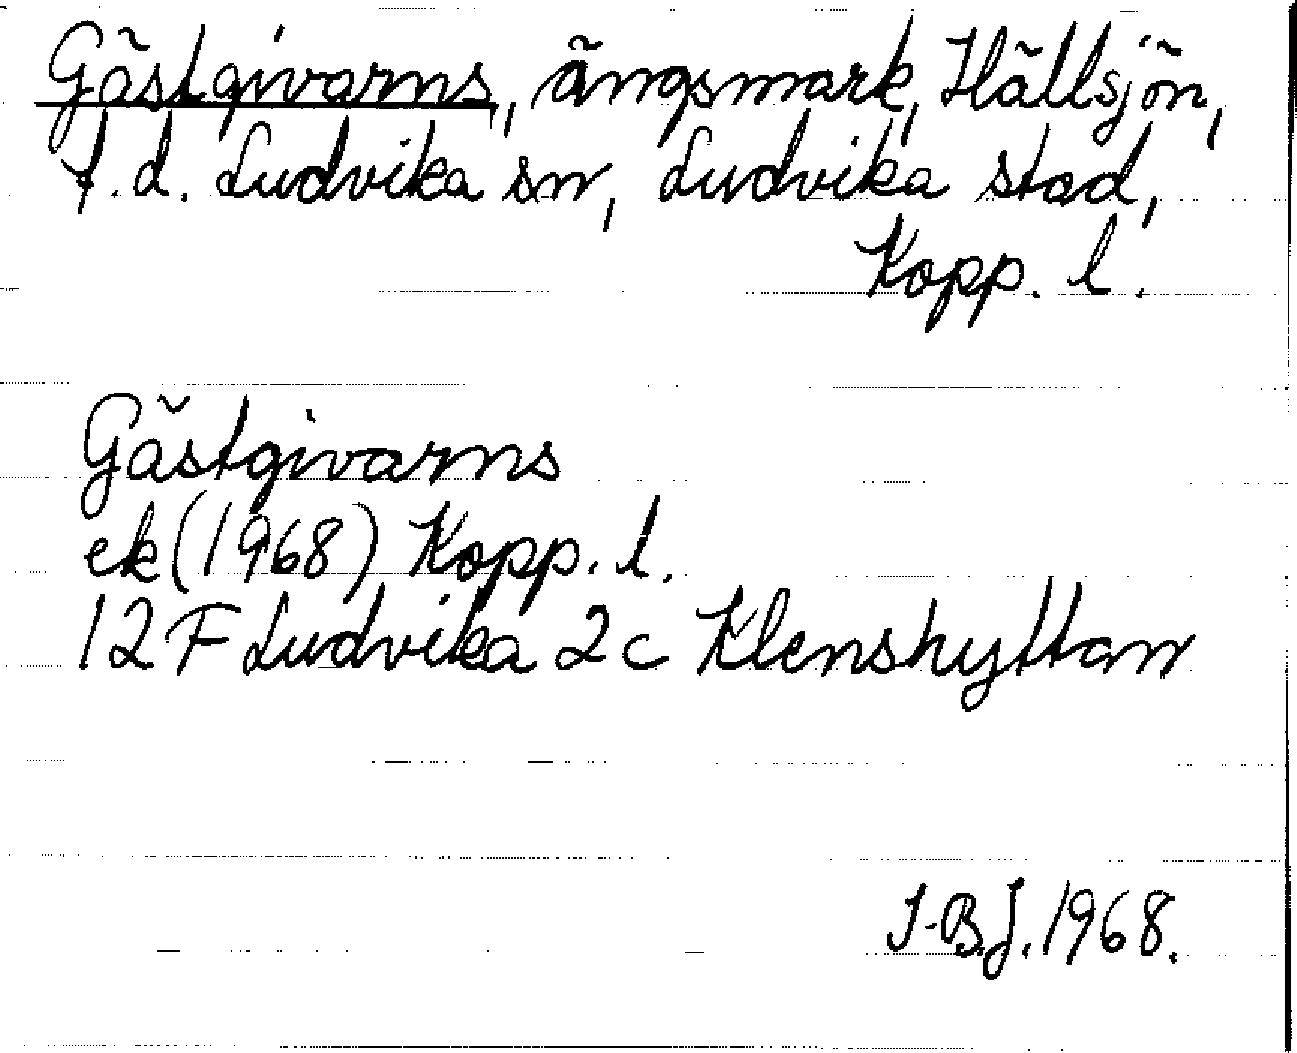 Gästgivarns, ängsmark, Hällsjön,
f.d. Ludvika sn, Ludvika stad,
Kopp. l.
Gästgivarns
ek (1968) Kopp. l.
12 F Ludvika 2c Klenshyttan
I-B.J. 1968.